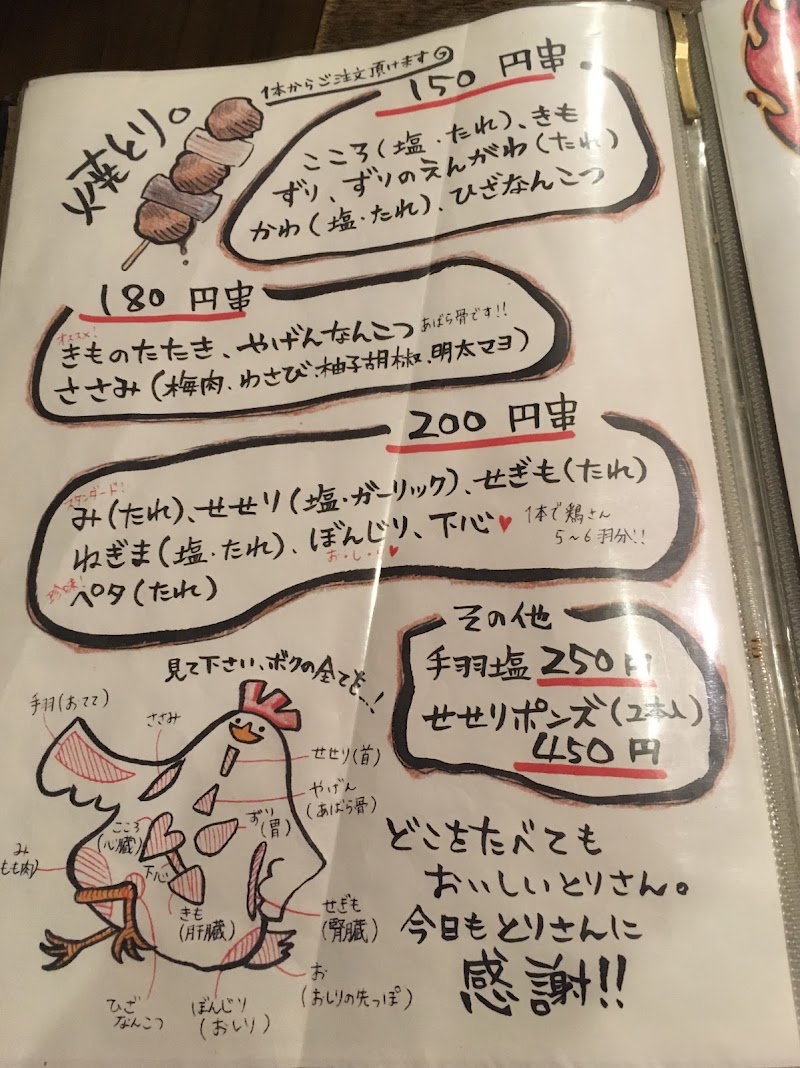 焼とり。
1本からご注文頂けます
150円串
こころ(塩・たれ)、きも
ずり、ずりのえんがわ(たれ)
かわ(塩・たれ)、ひざなんこつ
180円串
オススメ!
きものたたき、やげんなんこつ あばら骨です!!
ささみ(梅肉、わさび、柚子胡椒、明太マヨ)
200円串
スタンダード!
み(たれ)、せせり(塩・ガーリック)、せぎも(たれ)
ねぎま(塩・たれ)、ぼんじり、下心♥ 1本で鶏さん
5〜6羽分!!
お・し・り♥
珍味!
ペタ(たれ)
その他
手羽塩 250円
せせりポンズ(2本入)
450円
見て下さい、ボクの全てを…!
手羽(おてて)
ささみ
せせり(首)
やげん
(あばら骨)
ずり
(胃)
こころ
(心臓)
下心
み
もも肉)
きも
(肝臓)
せぎも
(腎臓)
お
(おしりの先っぽ)
ぼんじり
(おしり)
ひざ
なんこつ
どこをたべても
おいしいとりさん。
今日もとりさんに
感謝!!